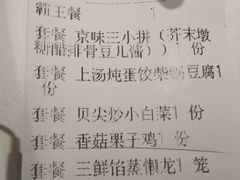 霸王餐 1
套餐 京味三小拼（芥末墩
糖醋排骨豆儿酱））1 份
套餐 上汤炖蛋饺柴锅豆腐
1 份
套餐 贝尖炒小白菜1 份
套餐 香菇栗子鸡1 份
套餐 三鲜馅蒸懒龙1 笼